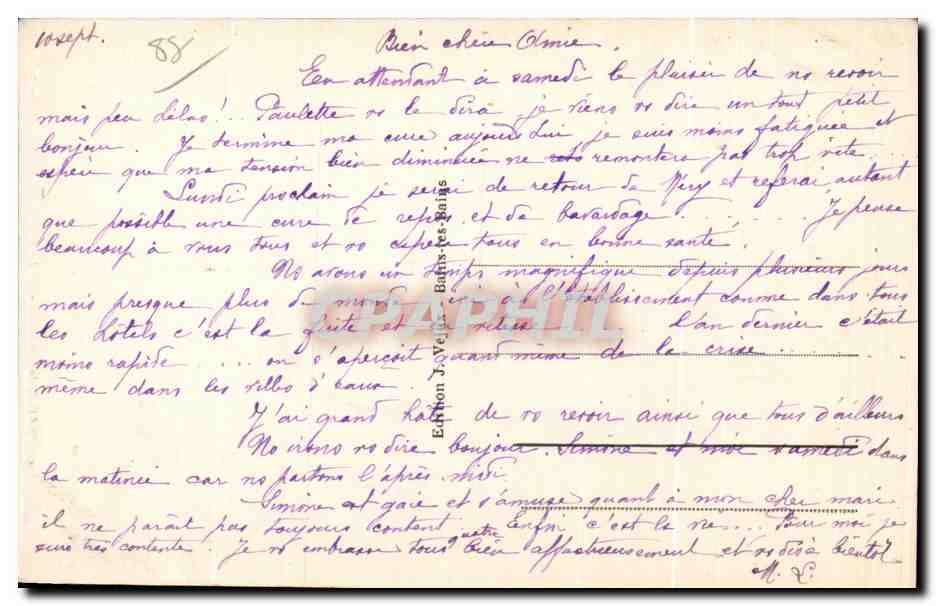 10 sept.
88
Bien chère Amie.
En attendant à samedi le plaisir de ns revoir
mais peu hélas! .. Paulette vs le dira je viens vs dire un tout petit
bonjour. Je termine ma cure aujourd'hui je suis moins fatiguée et
espère que ma tension bien diminuée ne remontera pas trop vite.
Lundi prochain je serai de retour de Néry et referai autant
que possible une cure de repos et de bavardage . . . . . . Je pense
beaucoup à vous tous et vs espère tous en bonne santé.
Ns avons un temps magnifique depuis plusieurs jours
mais presque plus de monde ici à l'établissement comme dans tous
les hôtels c'est la fuite et l'an dernier c'était
moins rapide .... on s'aperçoit quand même de la crise .....
même dans les villes d'eaux.
J'ai grand hâte de vs revoir ainsi que tous d'ailleurs
Ns irons vs dire bonjour Simone et moi samedi dans
la matinée car ns partons l'après midi.
Simone est gaie et s'amuse quant à mon cher mari
il ne paraît pas toujours content enfin c'est la vie... Pour moi je
suis très contente. Je vs embrasse tous quatre bien affectueusement et vs dis à bientôt
M. L.
Edition J. Vejux - Bains-les-Bains
CPAPHIL